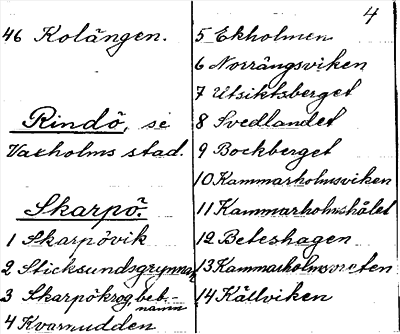 4
46 Kolängen.
Rindö, se
Vaxholms stad.
Skarpö.
1 Skarpövik
2 Sticksundsgrynnan
3 Skarpökrog beb.-
namn
4 Kvarnudden
5 Ekholmen
6 Norrängsviken
7 Utsiktsberget
8 Svedlandet
9 Bockberget
10 Kammarholmsviken
11 Kammarholmshålet
12 Beteshagen
13 Kammarholmsvreten
14 Källviken